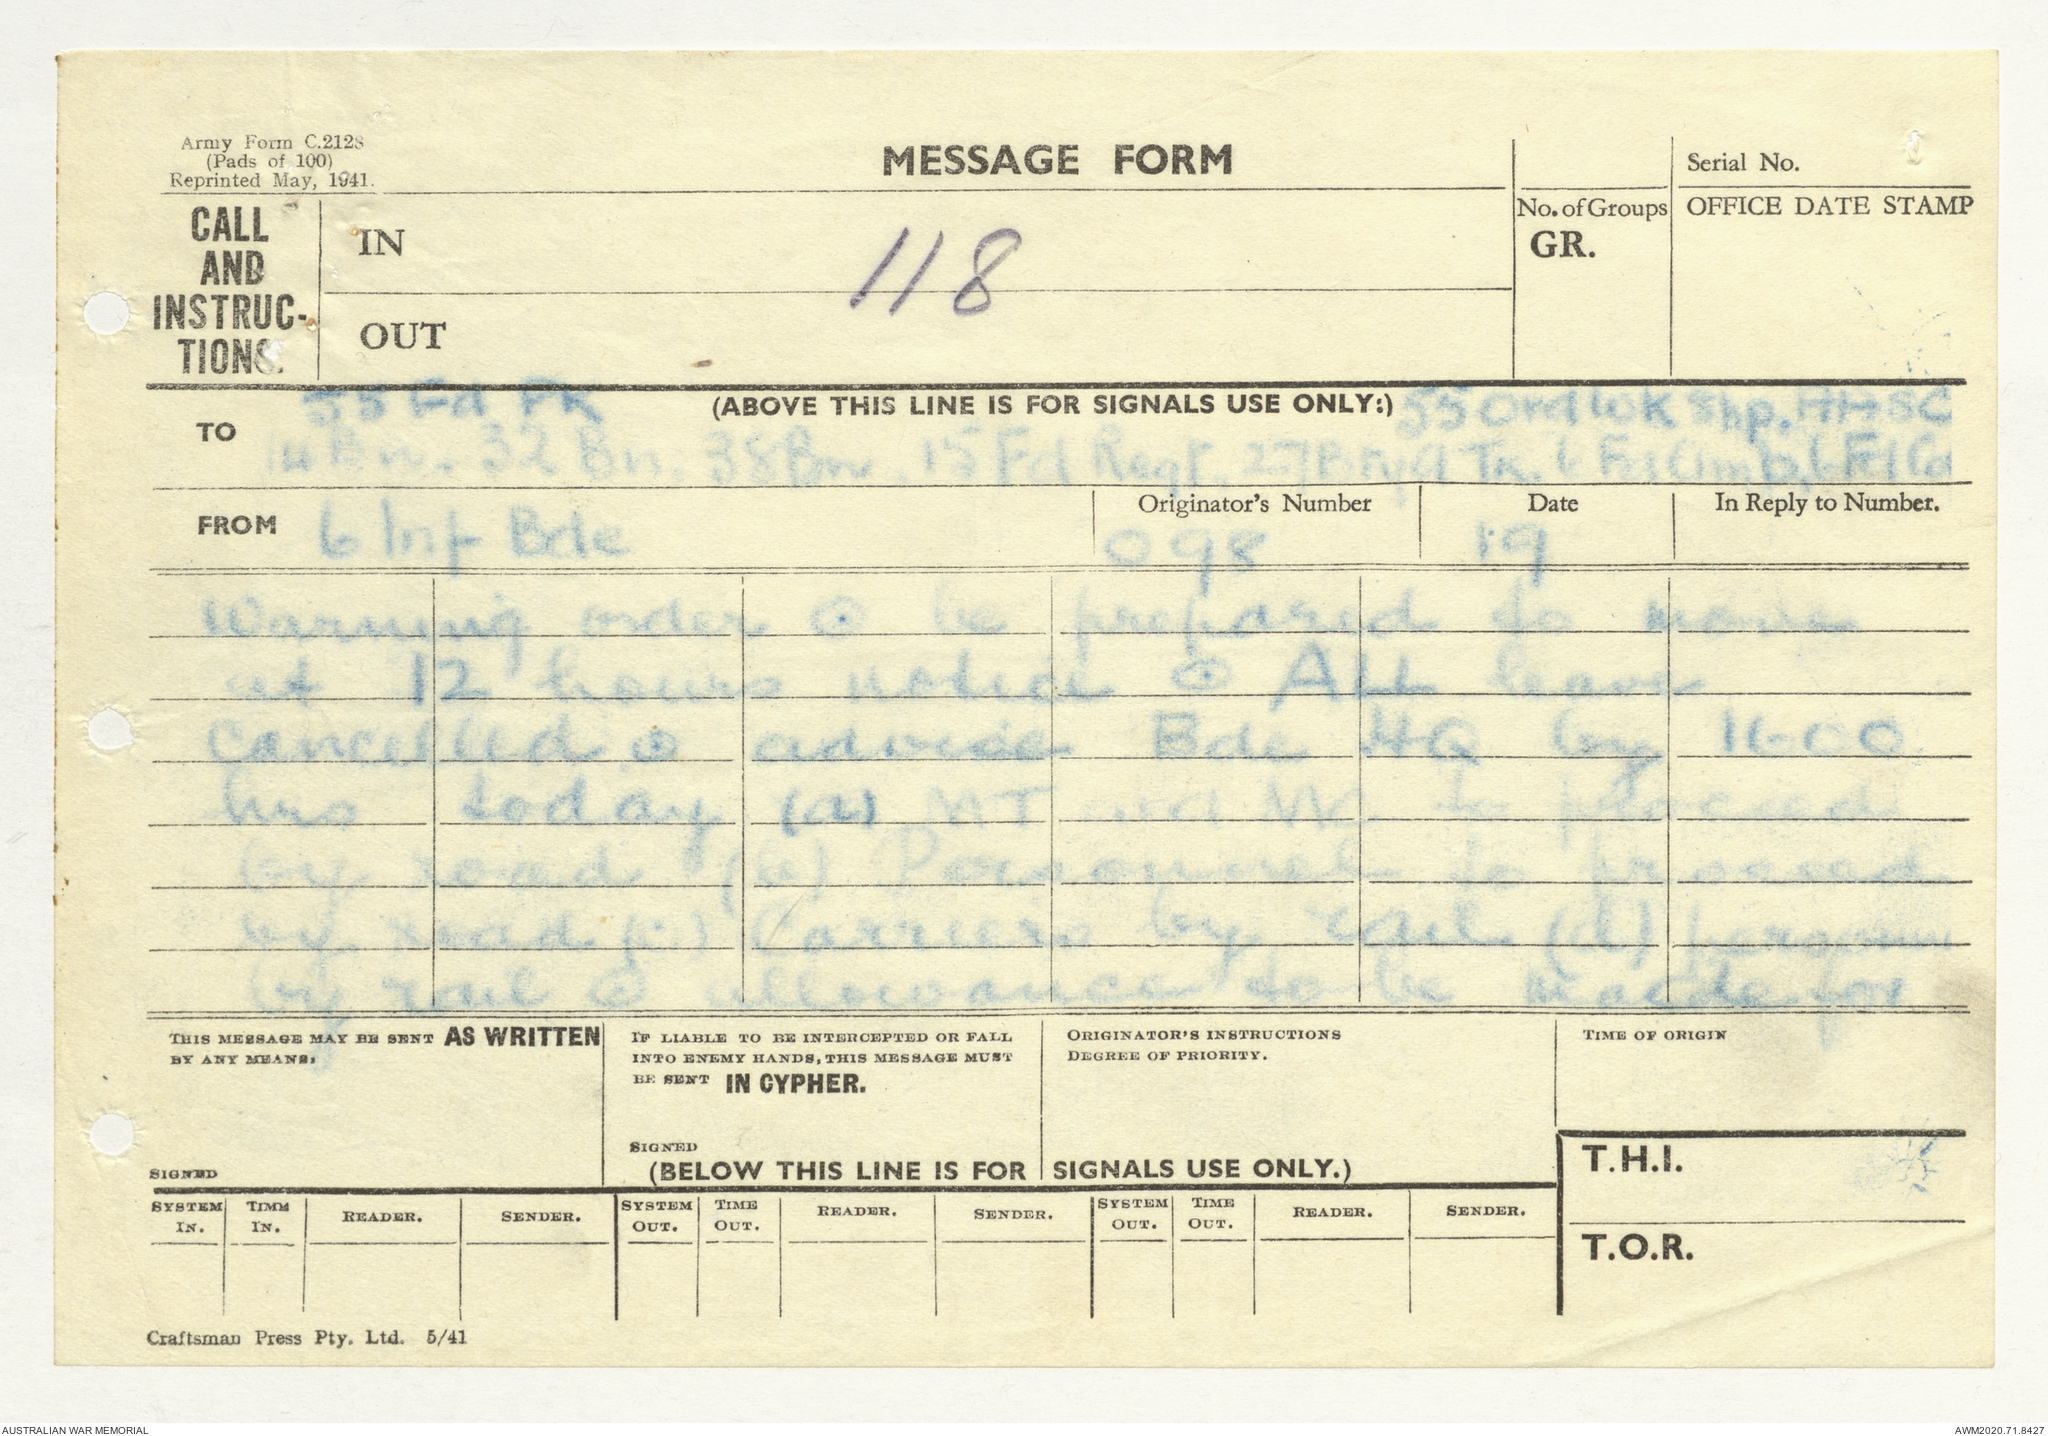 Army Form C.2128
(Pads of 100)
Reprinted May, 1941.
MESSAGE FORM
Serial No.
CALL
AND
INSTRUC-
TIONS.
IN
118
No. of Groups
GR.
OFFICE DATE STAMP
OUT
55 Fd Pk
(ABOVE THIS LINE IS FOR SIGNALS USE ONLY:)
55 Ord Wkshp.
TO
14 Bn. 32 Bn. 38 Bn. 15 Fd Regt.
FROM 6 Inf Bde
Originator's Number
Date
In Reply to Number.
098
19
Warning order ⊙ be prepared to move
at 12 hours notice ⊙ ALL leave
cancelled ⊙ advise Bde HQ by 1600
hrs today (a) MT and MC to proceed
by road (b) Personnel to proceed
by road (c) Carriers by rail (d) personnel
by rail ⊙ allowance to be made for
THIS MESSAGE MAY BE SENT AS WRITTEN
BY ANY MEANS.
IF LIABLE TO BE INTERCEPTED OR FALL
INTO ENEMY HANDS, THIS MESSAGE MUST
BE SENT IN CYPHER.
ORIGINATOR'S INSTRUCTIONS
DEGREE OF PRIORITY.
TIME OF ORIGIN
SIGNED
SIGNED
(BELOW THIS LINE IS FOR SIGNALS USE ONLY.)
T.H.I.
SYSTEM IN.
TIME IN.
READER.
SENDER.
SYSTEM OUT.
TIME OUT.
READER.
SENDER.
SYSTEM OUT.
TIME OUT.
READER.
SENDER.
T.O.R.
Craftsman Press Pty. Ltd. 5/41
AUSTRALIAN WAR MEMORIAL
AWM2020.71.8427